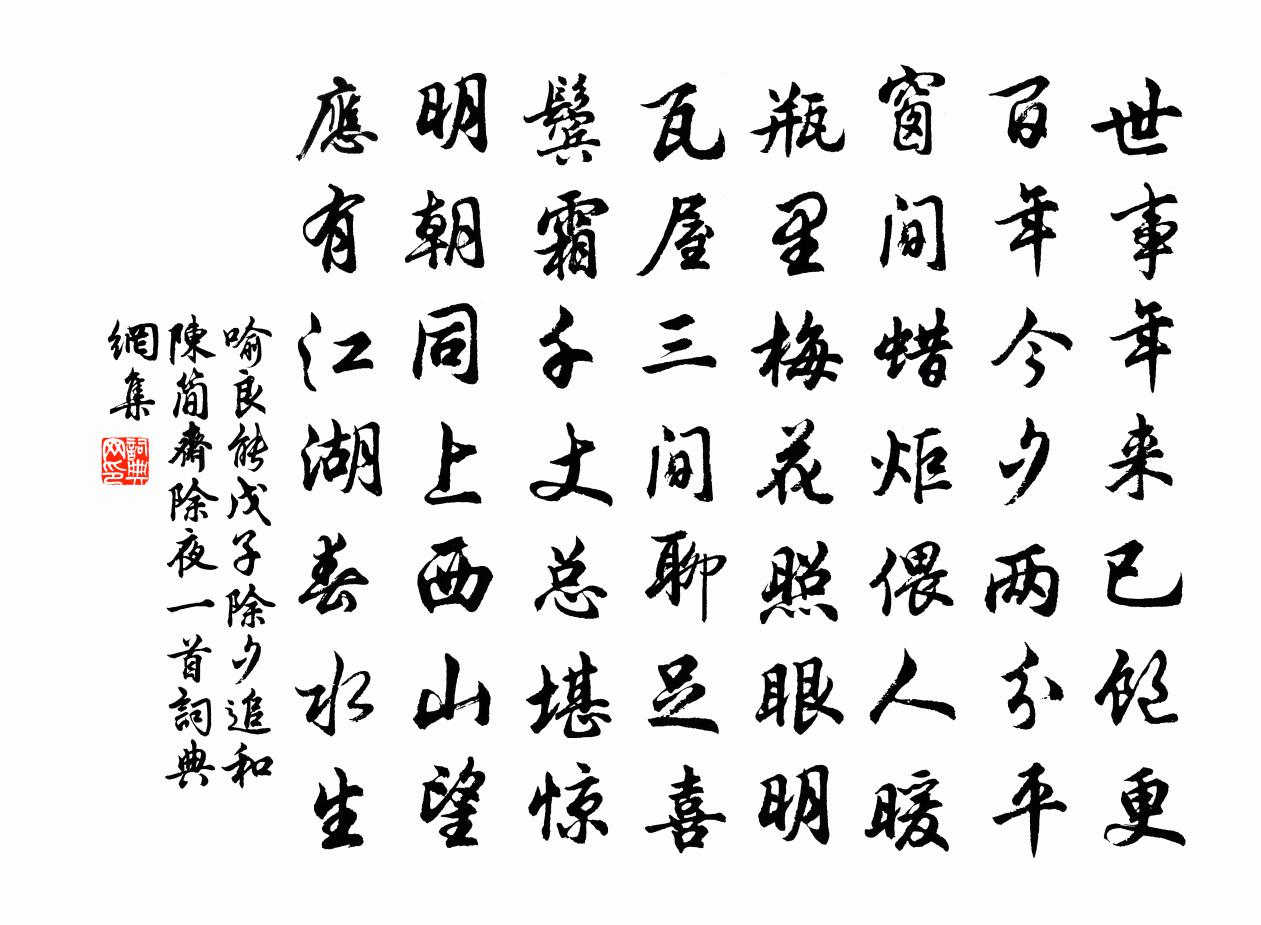 世事年年来已饱更
百年今夕两分平
窗间蜡炬偎人暖
瓶里梅花照眼明
瓦屋三间聊足喜
鬓霜千丈总堪惊
明朝同上西山望
應有江湖春水生
喻良能戊子除夕追和
陳简齋除夜一首詞典
網集
詞典
网印